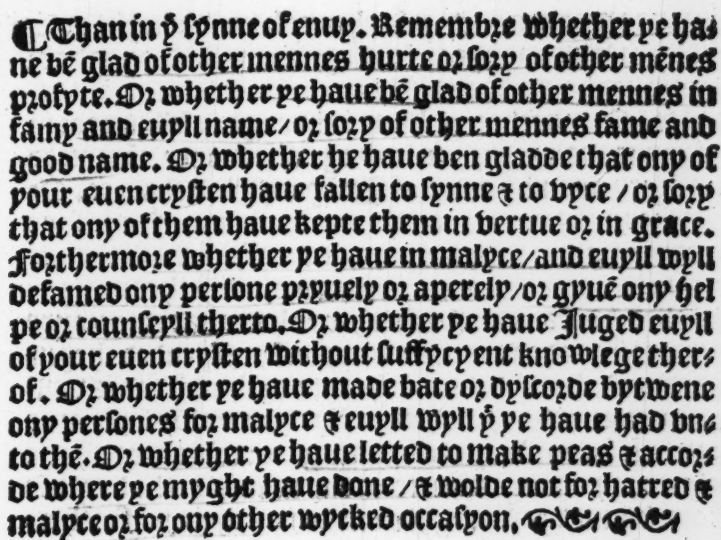 ¶ Than in yͤ ſynne of enuy. Remembꝛe whether ye ha⸗
ne bē glad of other mennes hurte oꝛ ſoꝛy of other mēnes
pꝛofyte. Oꝛ whether ye haue bē glad of other mennes in
famy and euyll name / oꝛ ſoꝛy of other mennes fame and
good name. Oꝛ whether he haue ben gladde that ony of
your euen cryſten haue fallen to ſynne ⁊ to vyce / oꝛ ſoꝛy
that ony of them haue kepte them in vertue oꝛ in grace.
Foꝛthermoꝛe whether ye haue in malyce / and euyll wyll
defamed ony perſone pꝛyuely oꝛ aperely / oꝛ gyuē ony hel
pe oꝛ counſeyll therto. Oꝛ whether ye haue Juged euyll
of your euen cryſten without ſuffycyent knowlege ther⸗
of. Oꝛ whether ye haue made bate oꝛ dyſcoꝛde bytwene
ony perſones foꝛ malyce ⁊ euyll wyll yͭ ye haue had vn⸗
to thē. Oꝛ whether ye haue letted to make peas ⁊ accoꝛ⸗
de where ye myght haue done / ⁊ wolde not foꝛ hatred ⁊
malyce oꝛ foꝛ ony other wycked occaſyon.